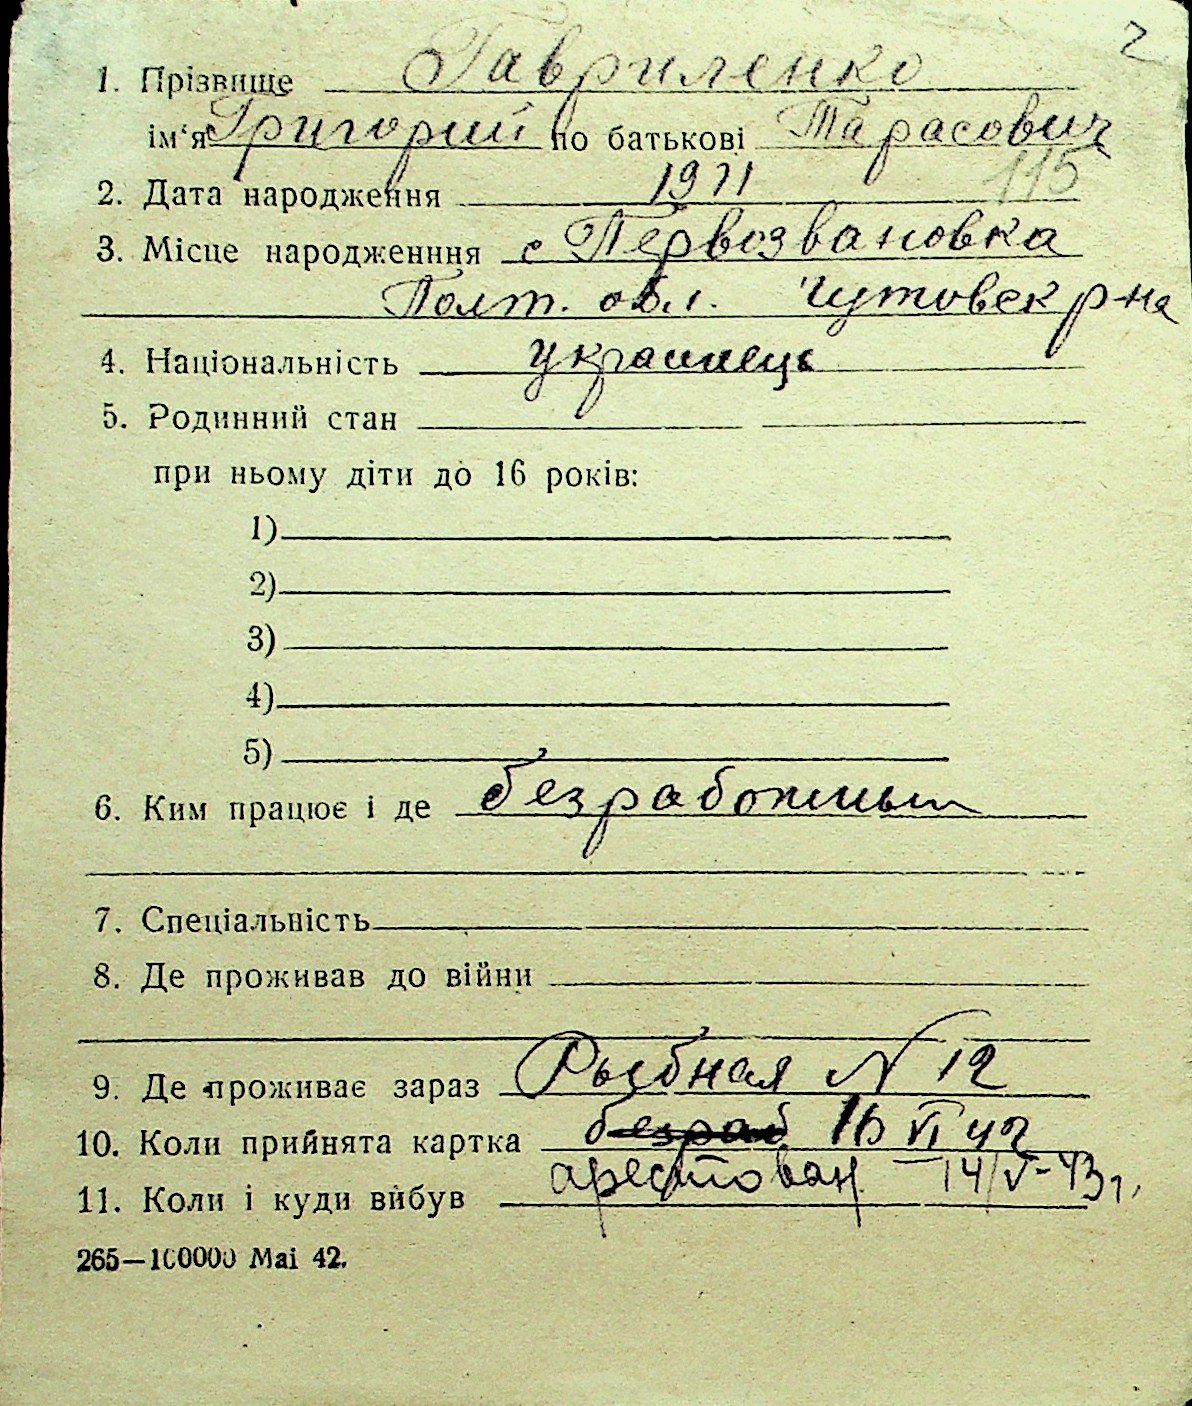 2
1. Прізвище Гавриленко
ім‘я Григорий по батькові Тарасович
2. Дата народження 1911 115
3. Місце народженння с Первозвановка
Полт. обл. Чутовск р-на
4. Національність украинець
5. Родинний стан
при ньому діти до 16 років:
1)
2)
3)
4)
5)
6. Ким працює і де безработный
7. Спеціальність
8. Де проживав до війни
9. Де проживає зараз Рыбная N 12
10. Коли прийнята картка безраб 16 VI 42
11. Коли і куди вибув арестован 14/V-43г.
265—100000 Маі 42.